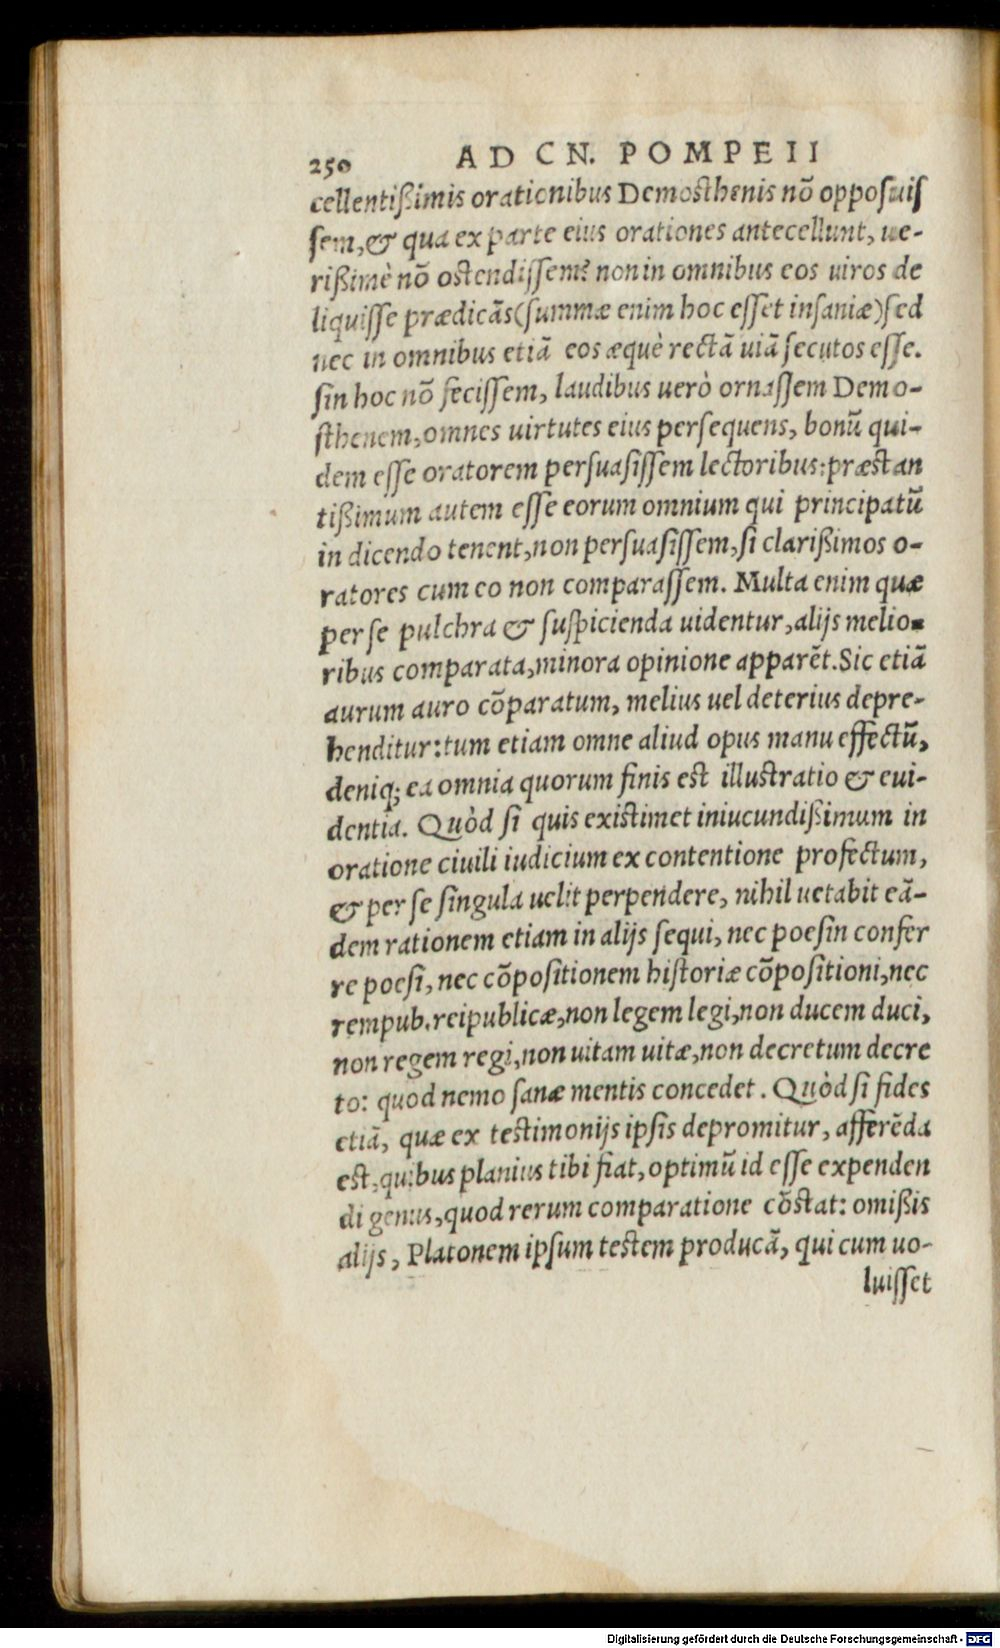 250 AD CN. POMPEII
cellentißimis orationibus Demosthenis nõ opposuis
sem, & qua ex parte eius orationes antecellunt, ue-
rißimè nõ ostendissem? non in omnibus eos uiros de
liquisse prædicãs (summæ enim hoc esset insaniæ) sed
nec in omnibus etiã eos æquè rectã uiã secutos esse.
sin hoc nõ fecissem, laudibus uerò ornassem Demo-
sthenem, omnes uirtutes eius persequens, bonũ qui-
dem esse oratorem persuasissem lectoribus: præstan
tißimum autem esse eorum omnium qui principatũ
in dicendo tenent, non persuasissem, si clarißimos o-
ratores cum eo non comparassem. Multa enim quæ
per se pulchra & suspicienda uidentur, alijs melio-
ribus comparata, minora opinione apparẽt. Sic etiã
aurum auro cõparatum, melius uel deterius depre-
henditur: tum etiam omne aliud opus manu effectũ,
deniq; ea omnia quorum finis est illustratio & eui-
dentia. Quòd si quis existimet iniucundißimum in
oratione ciuili iudicium ex contentione profectum,
& per se singula uelit perpendere, nihil uetabit eã-
dem rationem etiam in alijs sequi, nec poesin confer
re poesi, nec cõpositionem historiæ cõpositioni, nec
rempub. reipublicæ, non legem legi, non ducem duci,
non regem regi, non uitam uitæ, non decretum decre
to: quod nemo sanæ mentis concedet. Quòd si fides
etiã, quæ ex testimonijs ipsis depromitur, afferẽda
est, quibus planius tibi fiat, optimũ id esse expenden
di genus, quod rerum comparatione cõstat: omißis
alijs, Platonem ipsum testem producã, qui cum uo-
luisset
Digitalisierung gefördert durch die Deutsche Forschungsgemeinschaft - DFG